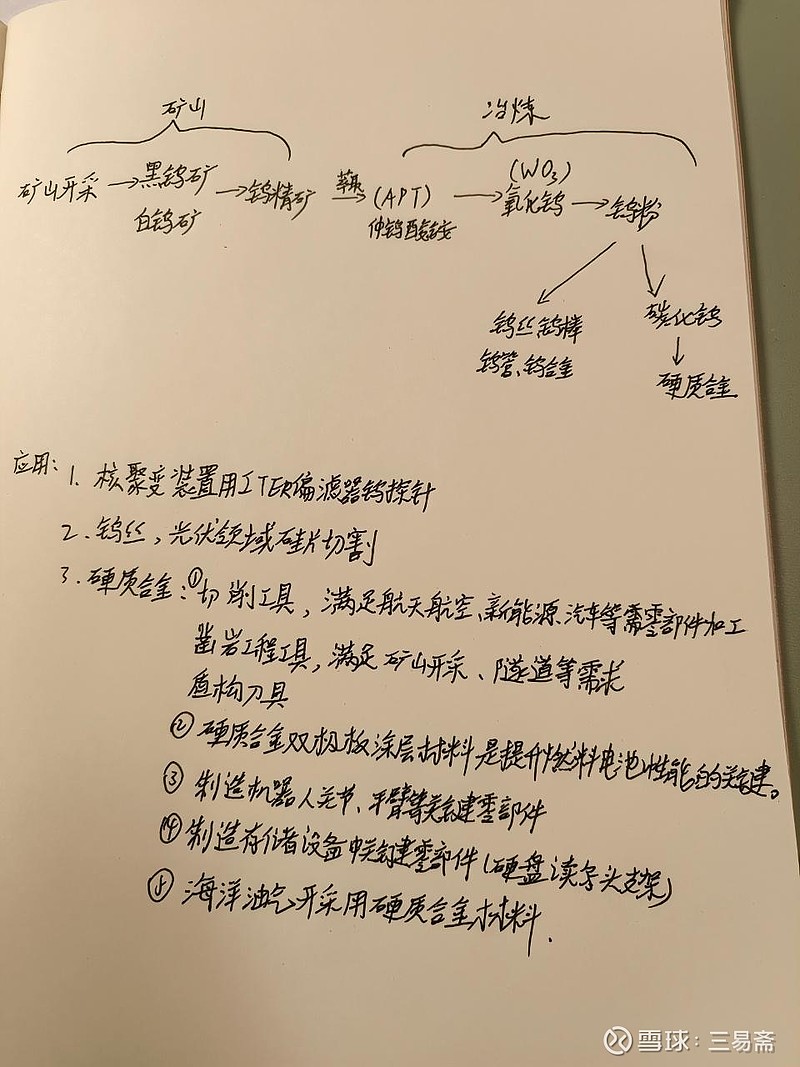 矿山 冶炼
矿山开采 → 黑钨矿 → 钨精矿 → (APT) → (WO₃) 氧化钨 → 钨粉
白钨矿 仲钨酸铵
钨丝钨棒 碳化钨
钨管、钨合金 ↓
硬质合金
应用: 1. 核聚变装置用ITER偏滤器钨探针
2. 钨丝, 光伏领域硅片切割
3. 硬质合金: ①切削工具, 满足航天航空、新能源、汽车等需零部件加工
凿岩工程工具, 满足矿山开采、隧道等需求
盾构刀具
② 硬质合金双极板涂层材料是提升燃料电池性能的关键。
③ 制造机器人关节、手臂等关键零部件
④ 制造存储设备中关键零部件(硬盘读写头支架)
⑤ 海洋油气开采用硬质合金材料.
雪球: 三易斋